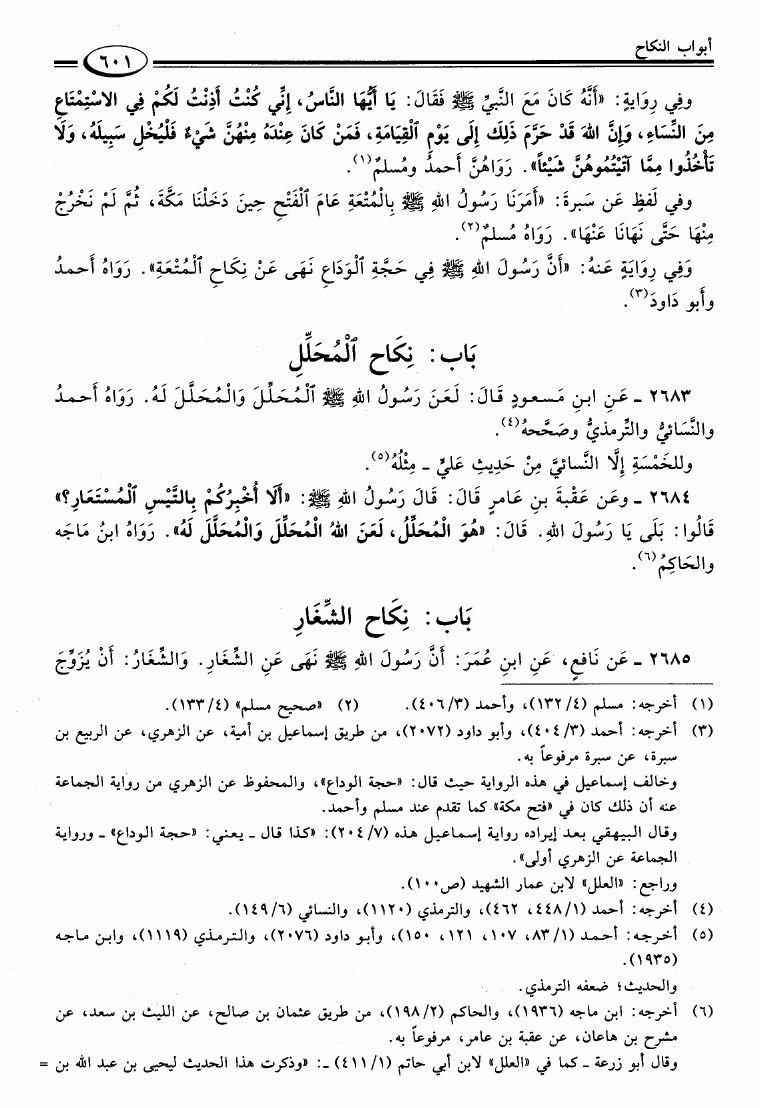 أبواب النكاح
٦٠١
وفي رِوَايةٍ: «أَنَّهُ كَانَ مَعَ النَّبيِّ ﷺ فَقَالَ: يَا أَيُّهَا النَّاسُ، إِنِّي كُنْتُ أَذِنْتُ لَكُمْ فِي الاسْتِمْتَاعِ
مِنَ النِّسَاءِ، وَإِنَّ اللهَ قَدْ حَرَّمَ ذَلِكَ إِلَى يَوْمِ القِيَامَةِ، فَمَنْ كَانَ عِنْدَهُ مِنْهُنَّ شَيْءٌ فَلْيُخْلِ سَبِيلَهُ، وَلَا
تَأْخُذُوا مِمَّا آتَيْتُمُوهُنَّ شَيْئاً». رَوَاهُنَّ أَحمدُ ومُسلمٌ(١).
وفي لَفظٍ عَن سَبرةَ: «أَمَرَنَا رَسُولُ اللهِ ﷺ بِالْمُتْعَةِ عَامَ الْفَتْحِ حِينَ دَخَلْنَا مَكَّةَ، ثُمَّ لَمْ نَخْرُجْ
مِنْهَا حَتَّى نَهَانَا عَنْهَا». رَوَاهُ مُسلمٌ(٢).
وَفِي رِوَايَةٍ عَنهُ: «أَنَّ رَسُولَ اللهِ ﷺ فِي حَجَّةِ الْوَدَاعِ نَهَى عَنْ نِكَاحِ الْمُتْعَةِ». رَوَاهُ أَحمدُ
وأَبو دَاودَ(٣).
بَاب: نِكَاح الْمُحَلِّلِ
٢٦٨٣ ـ عَنِ ابنِ مَسعودٍ قَالَ: لَعَنَ رَسُولُ اللهِ ﷺ الْمُحَلِّلَ وَالْمُحَلَّلَ لَهُ. رَوَاهُ أَحمدُ
والنَّسَائيُّ والتِّرمذيُّ وصَحَّحهُ(٤).
وللخَمْسَةِ إِلَّا النَّسائيَّ مِنْ حَدِيثِ عَليٍّ ـ مِثْلُهُ(٥).
٢٦٨٤ ـ وعَن عقْبةَ بنِ عامرٍ قَالَ: قَالَ رَسُولُ اللهِ ﷺ: «أَلَا أُخْبِرُكُمْ بِالتَّيْسِ الْمُسْتَعَارِ؟»
قَالُوا: بَلَى يَا رَسُولَ اللهِ. قَالَ: «هُوَ المُحَلِّلُ، لَعَنَ اللهُ المُحَلِّلَ وَالمُحَلَّلَ لَهُ». رَوَاهُ ابنُ مَاجَه
والحَاكِمُ(٦).
بَاب: نِكَاح الشِّغَارِ
٢٦٨٥ ـ عَن نَافعٍ، عَنِ ابنِ عُمَرَ: أَنَّ رَسُولَ اللهِ ﷺ نَهَى عَنِ الشِّغَارِ. وَالشِّغَارُ: أَنْ يُزَوِّجَ
(١) أخرجه: مسلم (٤/ ١٣٢)، وأحمد (٣/ ٤٠٦). (٢) «صحيح مسلم» (٤/ ١٣٣).
(٣) أخرجه: أحمد (٣/ ٤٠٤)، وأبو داود (٢٠٧٢)، من طريق إسماعيل بن أمية، عن الزهري، عن الربيع بن
سبرة، عن سبرة مرفوعاً به.
وخالف إسماعيل في هذه الرواية حيث قال: «حجة الوداع»، والمحفوظ عن الزهري من رواية الجماعة
عنه أن ذلك كان في «فتح مكة» كما تقدم عند مسلم وأحمد.
وقال البيهقي بعد إيراده رواية إسماعيل هذه (٧/ ٢٠٤): «كذا قال ـ يعني: «حجة الوداع» ـ ورواية
الجماعة عن الزهري أولى».
وراجع: «العلل» لابن عمار الشهيد (ص١٠٠).
(٤) أخرجه: أحمد (١/ ٤٤٨، ٤٦٢)، والترمذي (١١٢٠)، والنسائي (٦/ ١٤٩).
(٥) أخرجه: أحمد (١/ ٨٣، ١٠٧، ١٢١، ١٥٠)، وأبو داود (٢٠٧٦)، والترمذي (١١١٩)، وابن ماجه
(١٩٣٥).
والحديث؛ ضعفه الترمذي.
(٦) أخرجه: ابن ماجه (١٩٣٦)، والحاكم (٢/ ١٩٨)، من طريق عثمان بن صالح، عن الليث بن سعد، عن
مشرح بن هاعان، عن عقبة بن عامر، مرفوعاً به.
وقال أبو زرعة ـ كما في «العلل» لابن أبي حاتم (١/ ٤١١) ـ: «وذكرت هذا الحديث ليحيى بن عبد الله بن =